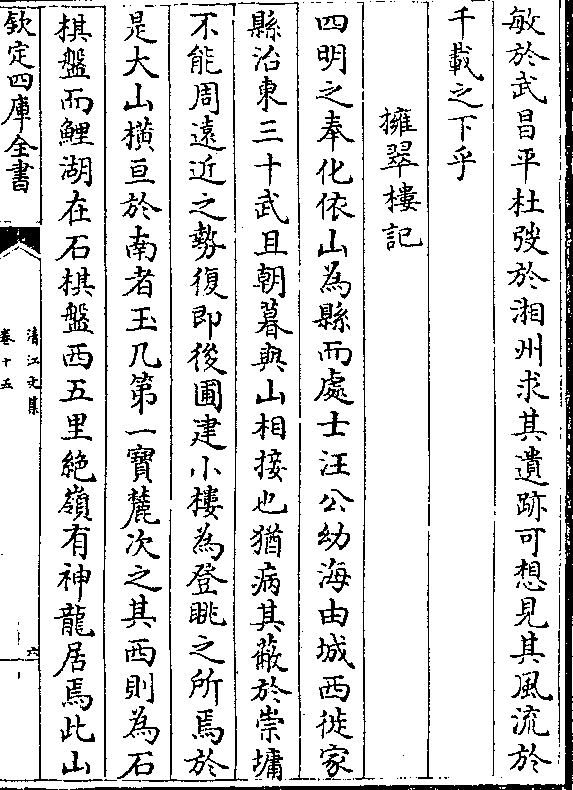 敏於武昌平杜弢於湘州求其遺跡可想見其風流於
千載之下乎
擁翠樓記
四明之奉化依山為縣而處士汪公幼海由城西徙家
縣治東三十武且朝暮與山相接也猶病其蔽於崇墉
不能周遠近之勢復即後圃建小樓為登眺之所焉於
是大山橫亘於南者玉几第一寶麓次之其西則為石
棋盤而鯉湖在石棋盤西五里絶嶺有神龍居焉此山
欽定四庫全書
清江文集
卷十五
六